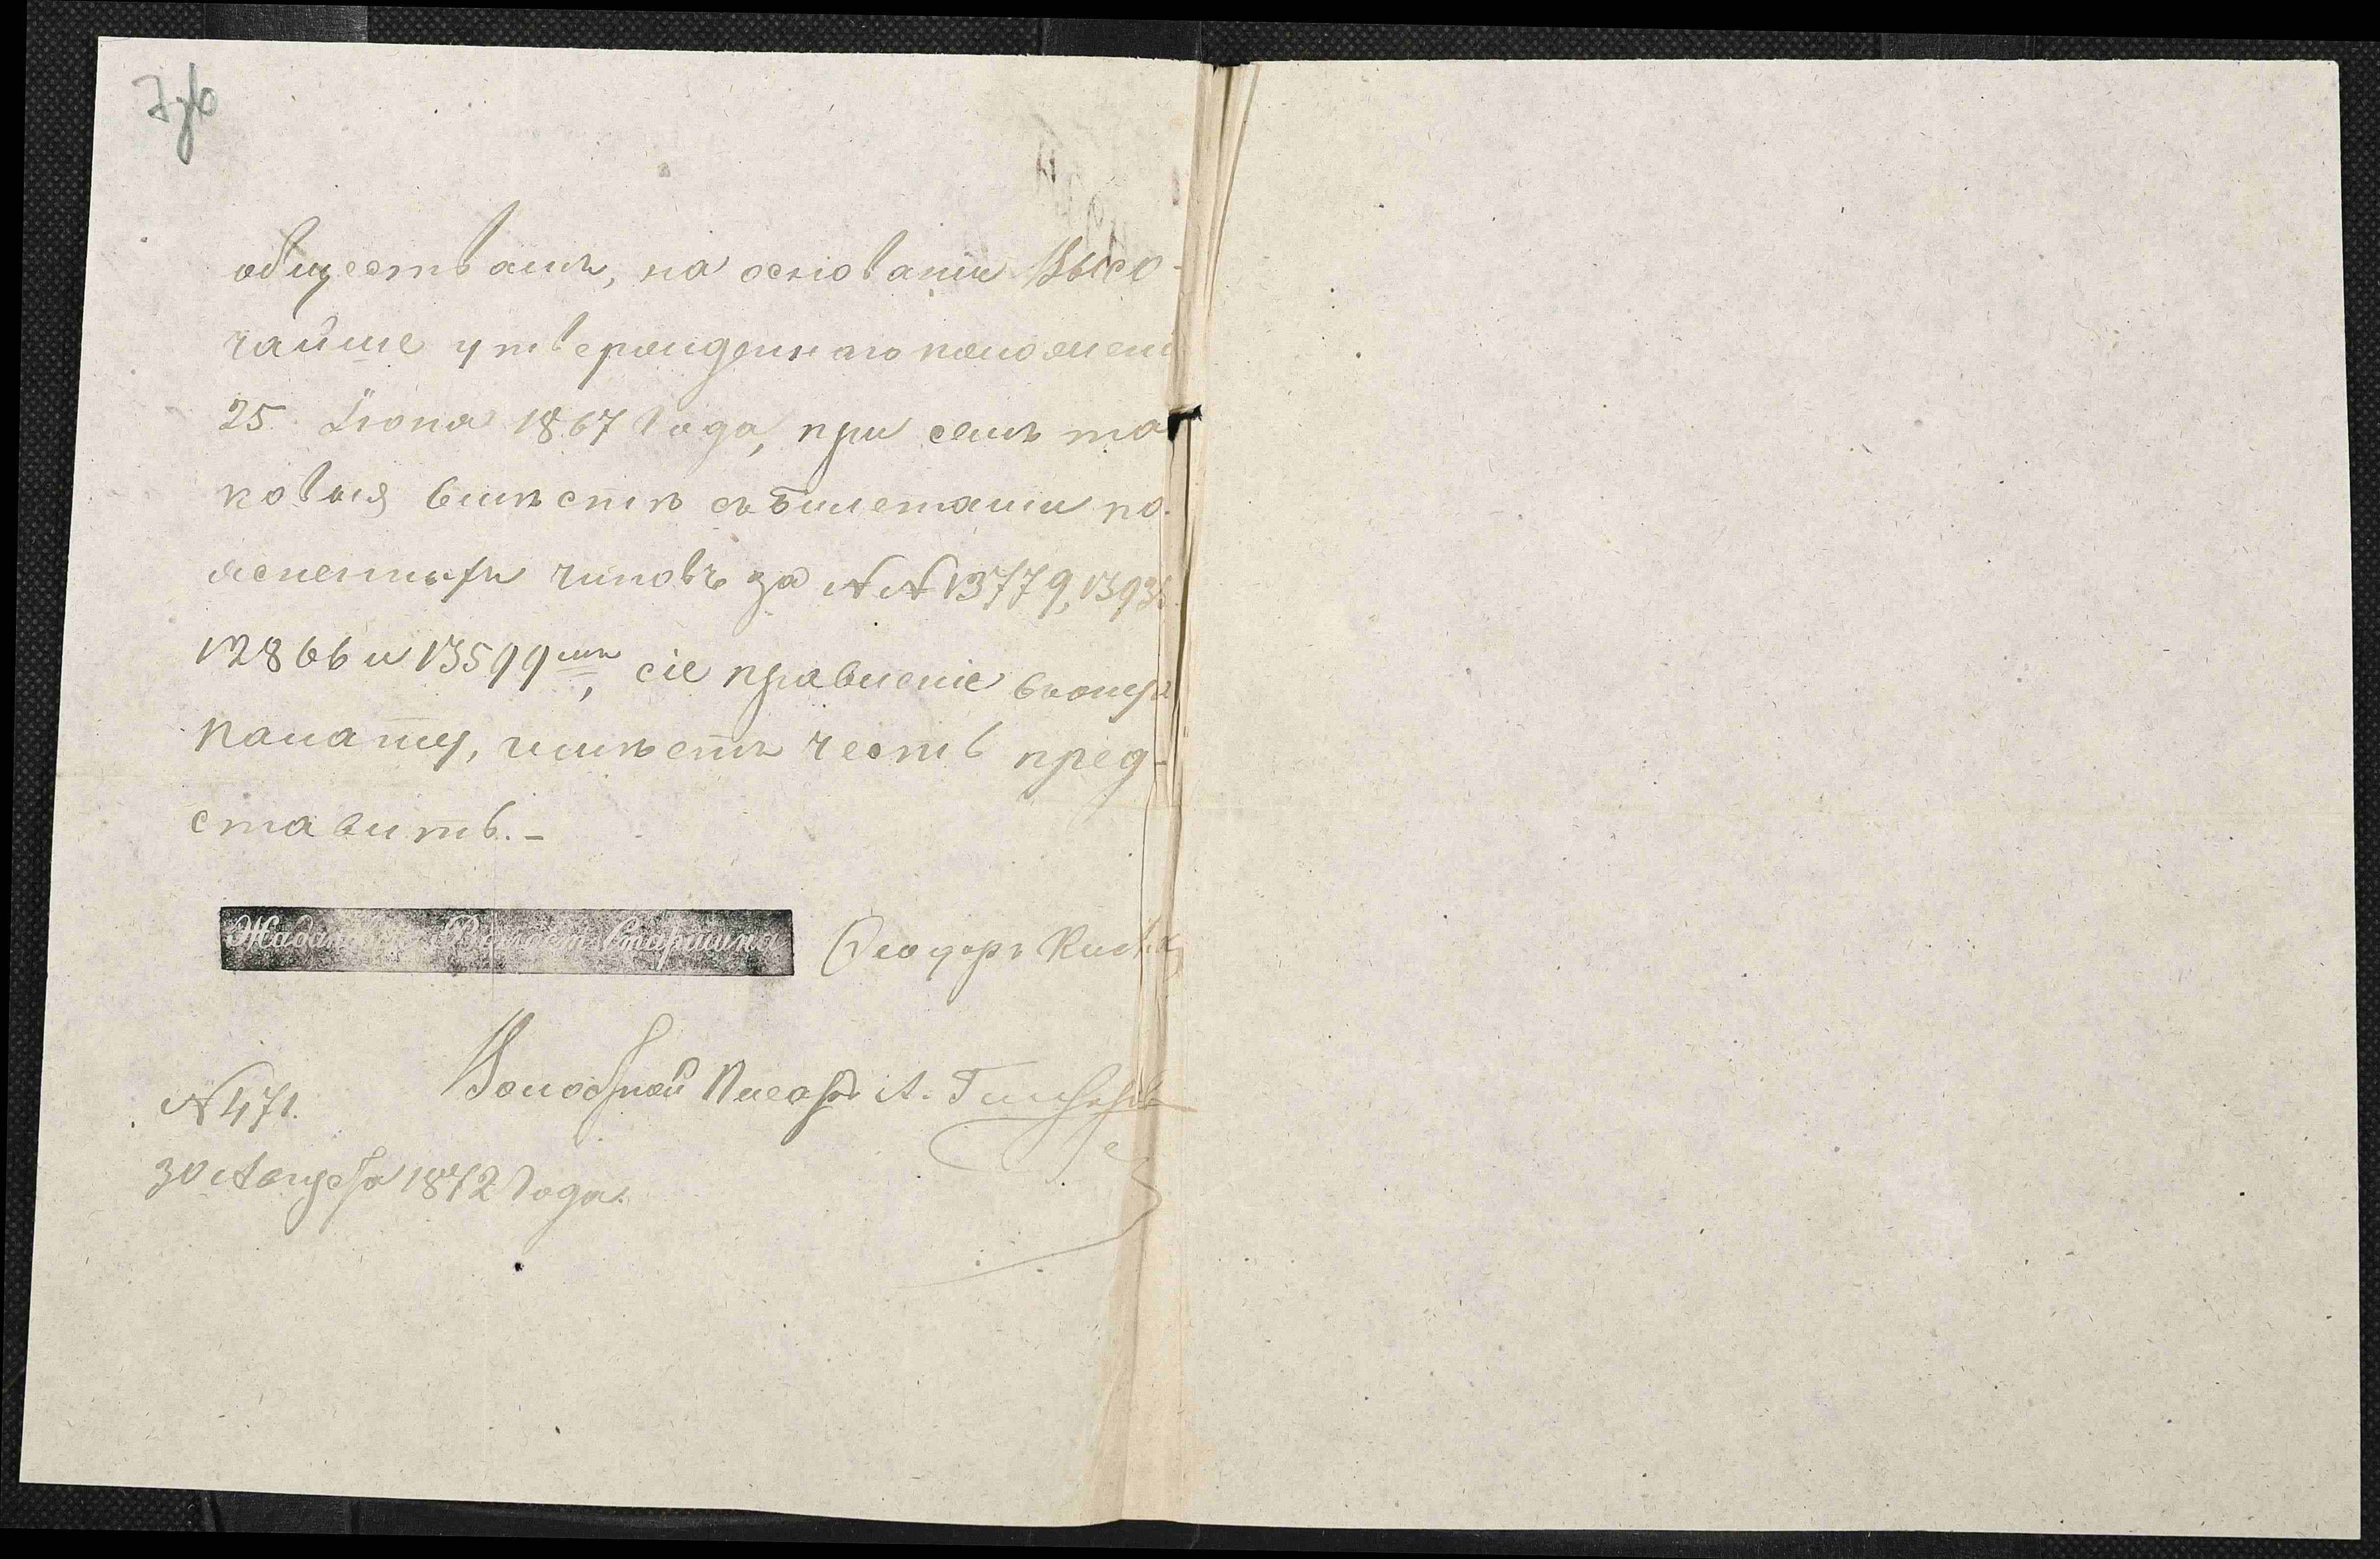 7об
обществамъ, на основаніи Высо-
чайше утвержденнаго положені
25 Іюня 1867 года, при семъ та
ковыя вмѣстѣ съ билетами по-
ясненныхъ чиновъ за №№ 13779,
12866 и 13599мъ, сіе правленіе въ оную
палату, имѣетъ честь пред-
ставить.-
Волост. Старшина Ѳеодоръ
Волостной Писарь А.
№ 471.
30 Августа 1872 года.